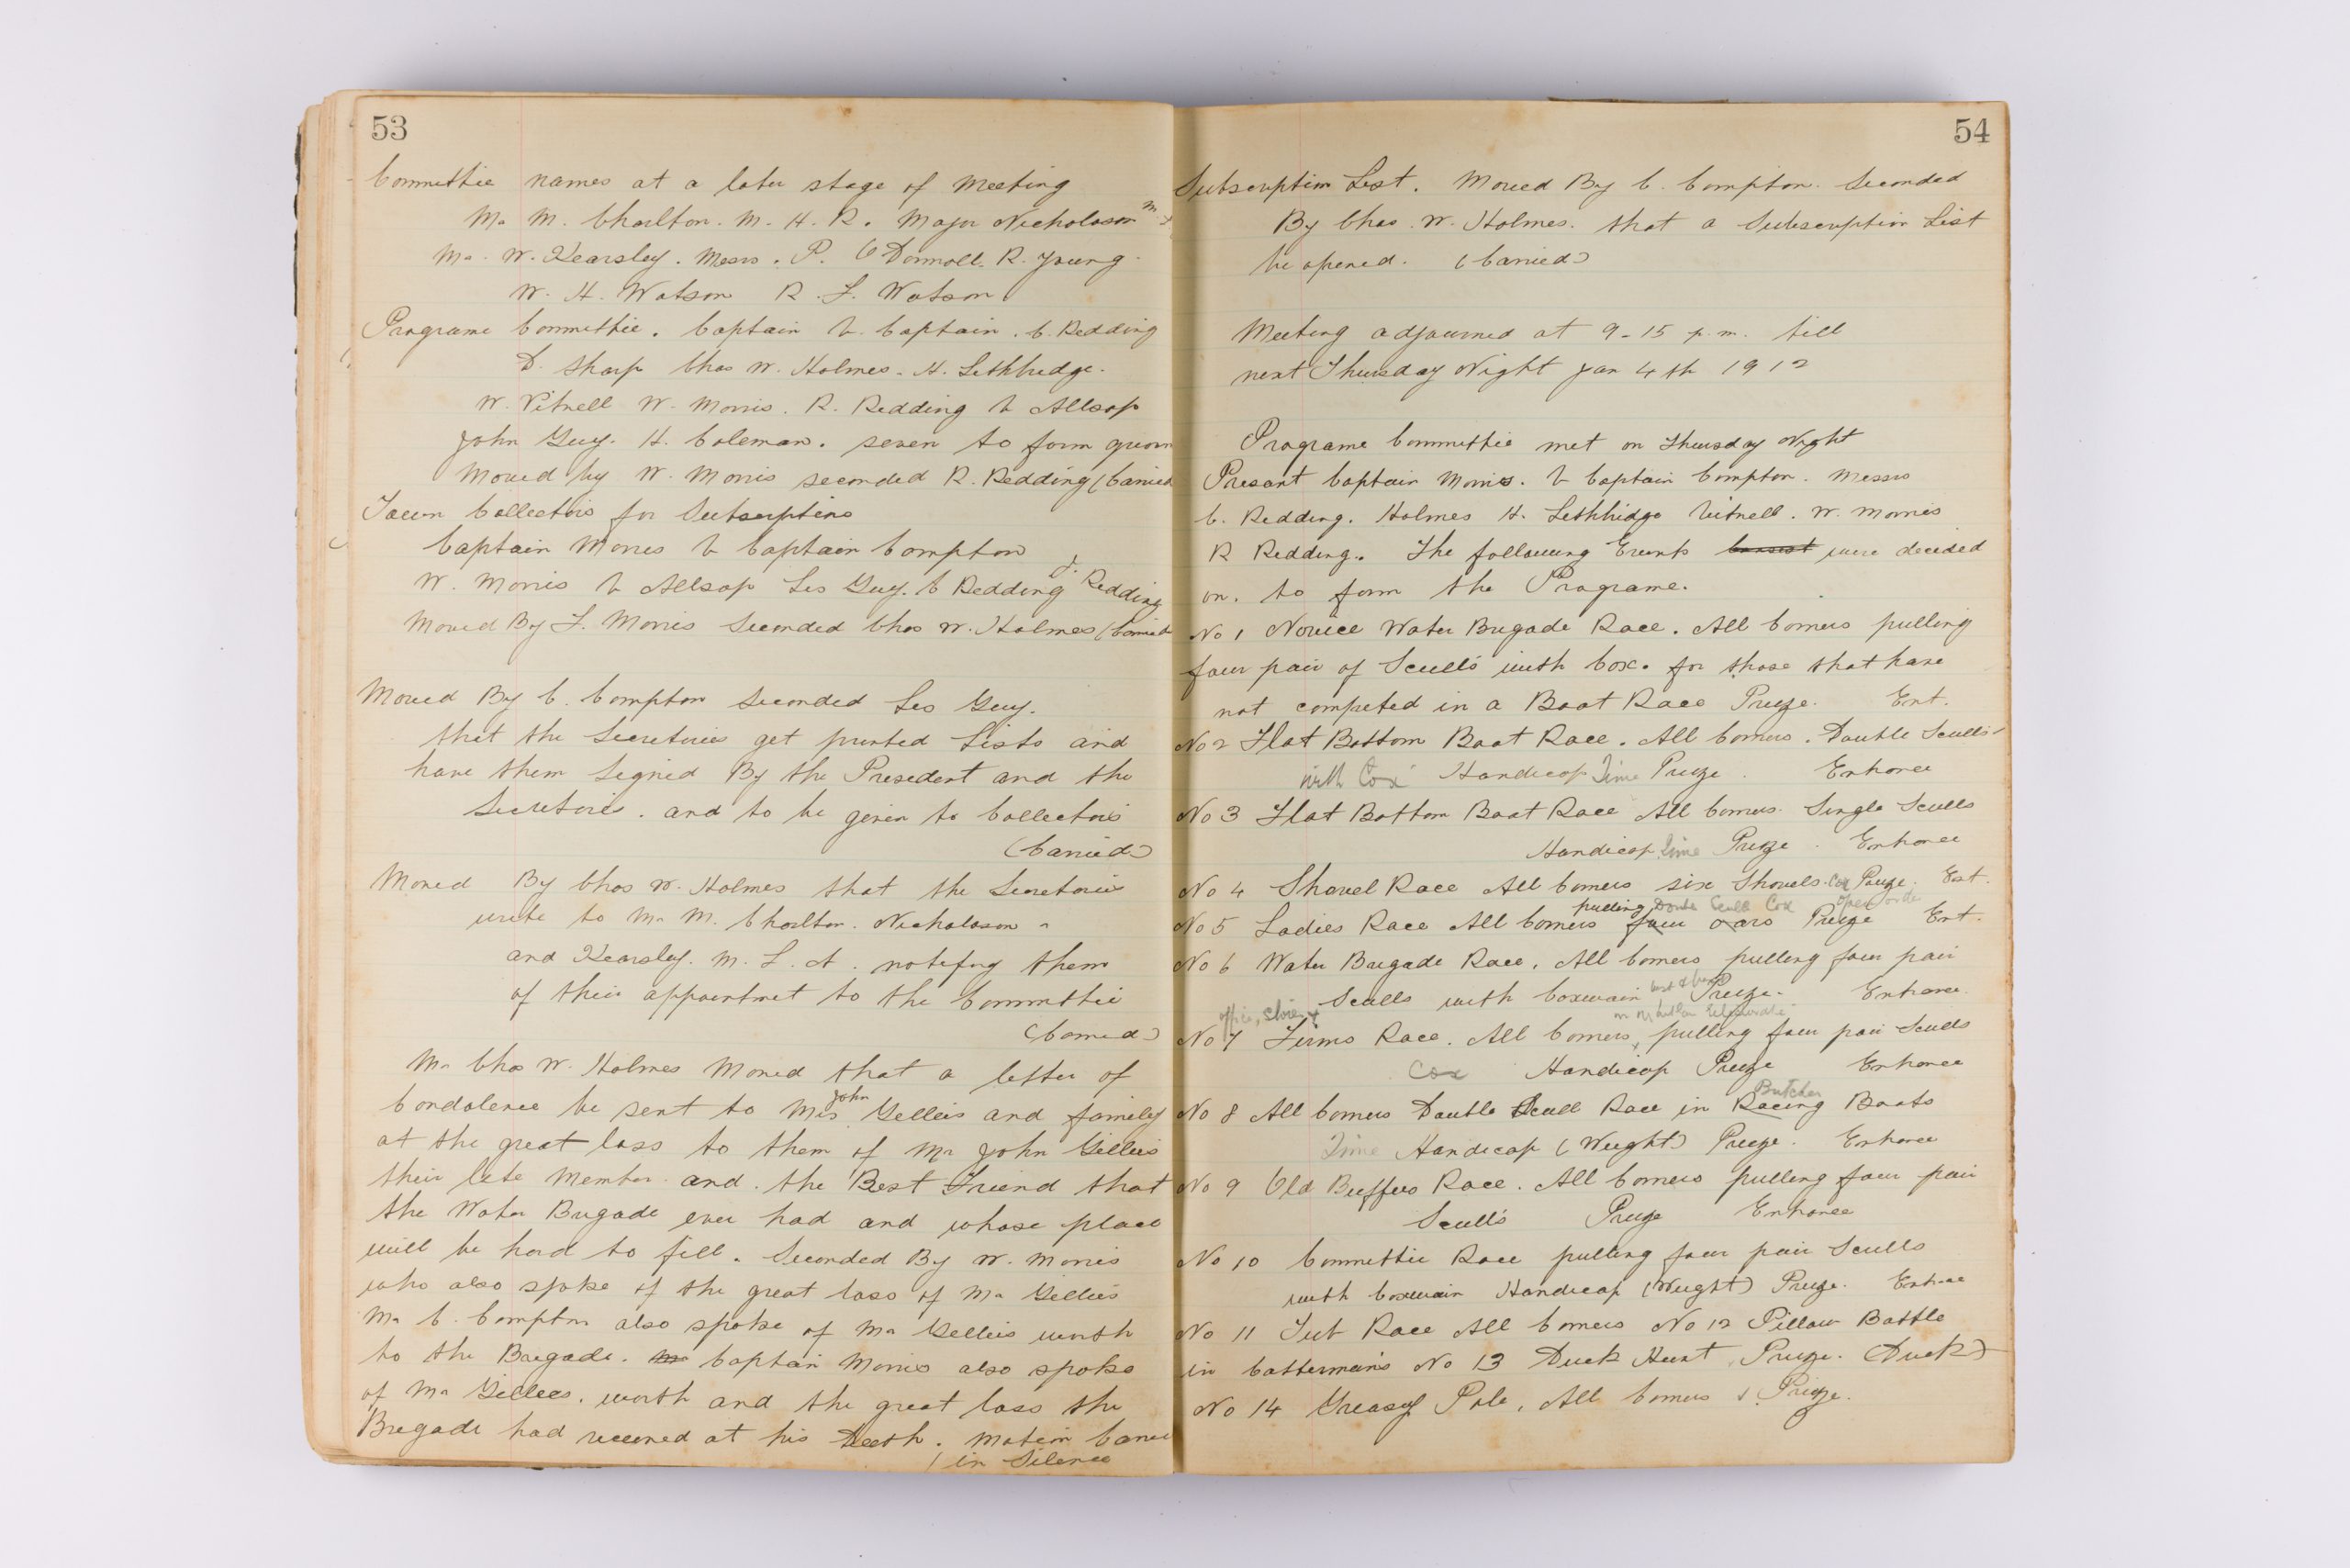 53
Committie names at a later stage of Meeting
Mr M. Charlton. M. H. R. Major Nicholoson
Mr. W. Kearsley. Messrs. P. O Donnoll. R. Young.
W. H. Watson R. L. Watson
Programe Committie. Captain V. Captain. C. Redding
D. Sharp Chas W. Holmes. H. Lethbridge.
W. Vitnell W. Morris. R. Redding V Allsop
John Guy. H. Coleman. seven to form quorm
Moved by W. Morris seconded R. Redding (Carried
Town Collectors for Subscriptins
Captain Morris V Captain Compton
W. Morris V Allsop Les Guy. C Redding J. Redding
Moved By F. Morris Seconded Chas W. Holmes (Carried
Moved By C. Compton Seconded Les Guy.
that the Secretories get printed Lists and
have them Signed By the President and the
Secretories. and to be given to Collectors
(Carried)
Moved By Chas W. Holmes that the Secretories
write to Mr M. Charlton. Nicholoson
and Kearsley. M. L. A. notifng them
of their appointmet to the Committie
(Carried)
Mr Chas W. Holmes Moved that a letter of
Condolence be sent to Mrs John Gilleis and family
at the great loss to them of Mr John Gilleis
their late Member and. the Best Friend that
the Water Brigade ever had and whose place
will be hard to fill. Seconded By W. Morris
who also spoke of the great loss of Mr Gilleis
Mr C. Compton also spoke of Mr Gilleis worth
to the Bregade. Mr Captain Morris also spoke
of Mr Gilleis. worth and the great loss the
Bregade had received at his Death. Motion Carried
in Silence
54
Subscription List. Moved By C. Compton. Seconded
By Chas. W. Holmes. that a Subscription List
be opened. (Carried)
Meeting adjourned at 9-15 p.m. till
next Thursday Night Jan 4th 1912
Programe Committie met on Thursday Night
Presant Captain Morris. V Captain Compton. Messrs
C. Redding. Holmes H. Lethbridge Vitnell. W. Morris
R Redding. The following Events were decided
on. to form the Programe.
No 1 Novice Water Brigade Race. All Comers pulling
four pair of Sculls with Cox. for those that have
not competed in a Boat Race Prize. Ent.
No 2 Flat Bottom Boat Race. All Comers. Double Sculls
with Cox Handicap Time Prize. Entrance
No 3 Flat Bottom Boat Race All Comers. Single Sculls
Handicap Time Prize. Entrance
No 4 Shovel Race All Comers six Shovels. Cox Prize. Ent.
pulling Double Scull Cox
No 5 Ladies Race All Comers four oars Prize Ent.
No 6 Water Brigade Race. All Comers pulling four pair
Sculls with Coxwain Prize. Entrance.
office, stores &
No 7 Firms Race. All Comers, pulling four pair Sculls
Cox Handicap Prize Entrance
Butcher
No 8 All Comers Double Scull Race in Racing Boats
Time Handicap (Weight) Prize. Entrance
No 9 Old Buffers Race. All Comers pulling four pair
Sculls Prize Entrance
No 10 Committie Race pulling four pair Sculls
with Coxwain Handicap (Weight) Prize. Entrance
No 11 Tub Race All Comers No 12 Pillow Battle
in Cattermains No 13 Duck Hunt. Prize. (Duck)
No 14 Greasey Pole, All Comers Prize.